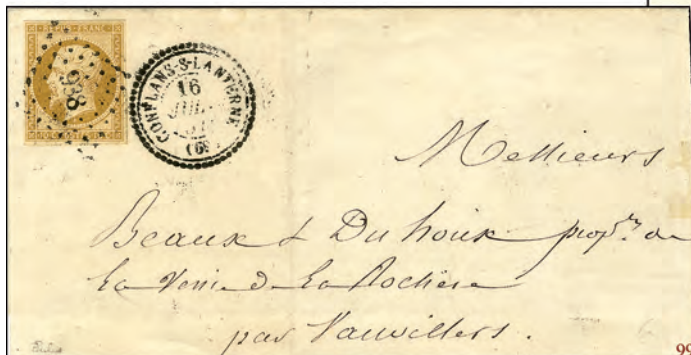 REPUB. FRANC.
938
CONFLANS-S-LANTERNE
16
JUIL.
(69)
Messieurs
Beaux & Du houx prop.rs de
La Verrie de La Rochere
par Vauvillers.
99